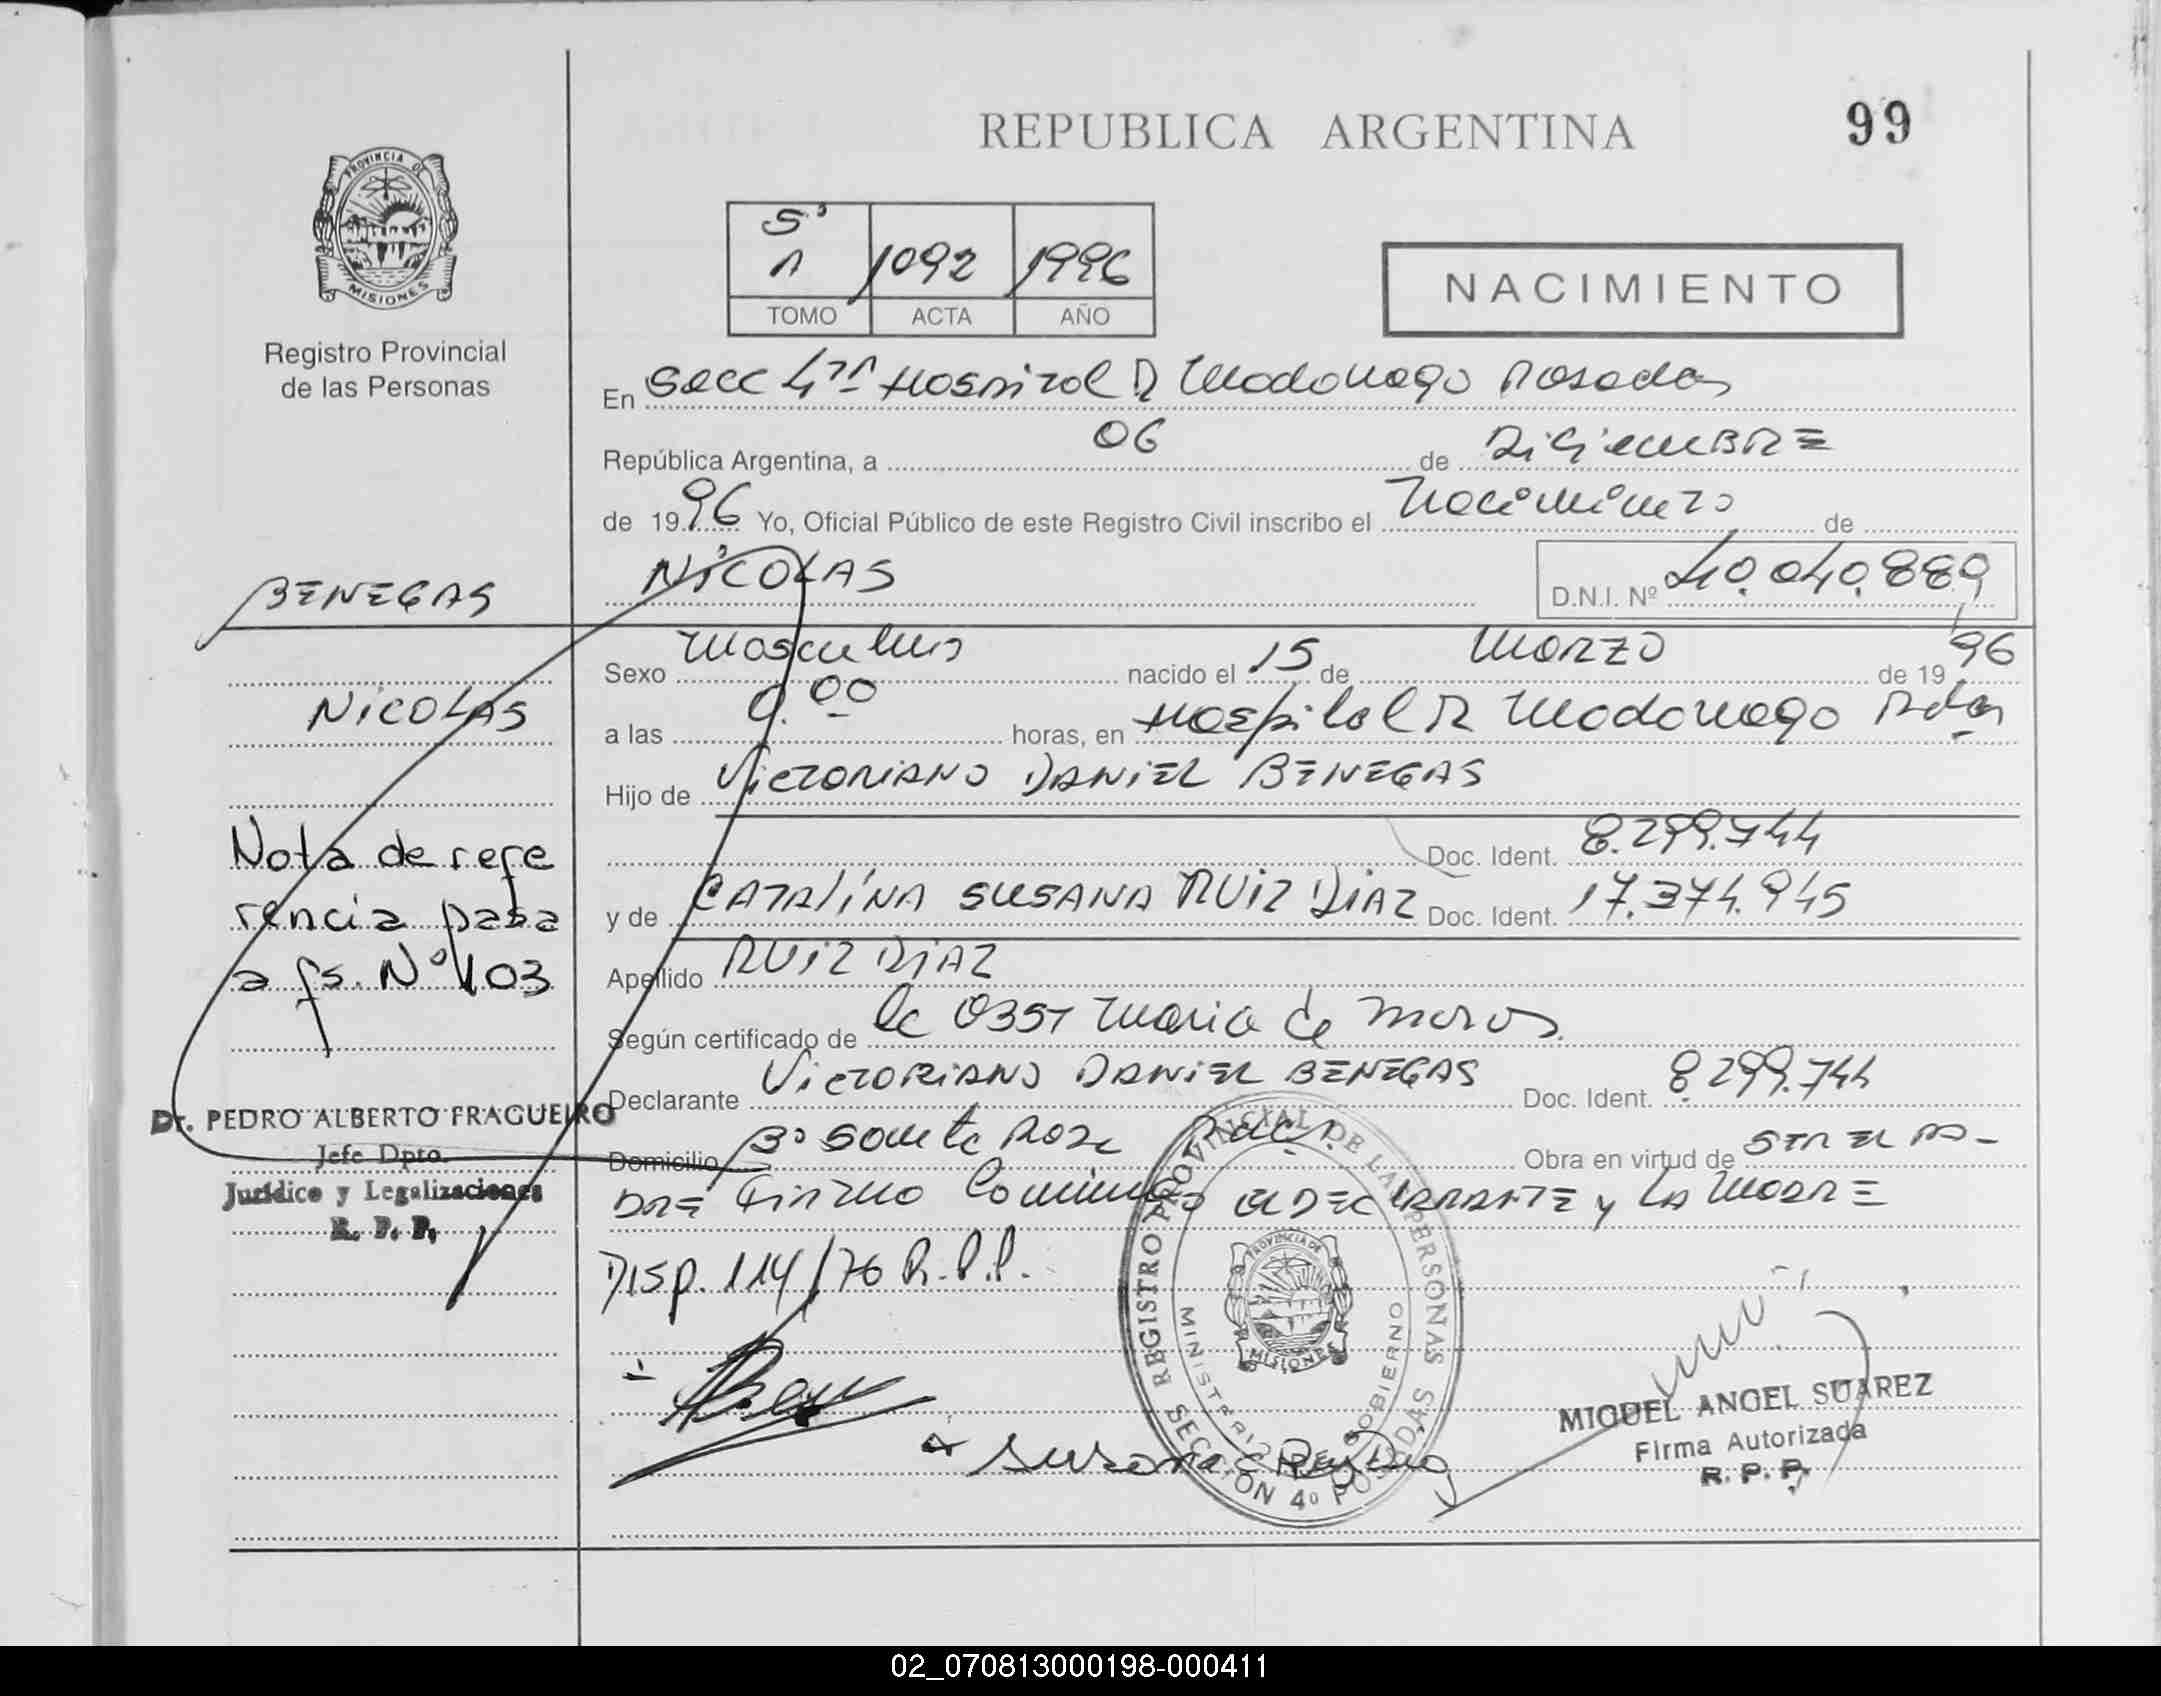 REPUBLICA ARGENTINA
99
PROVINCIA DE
MISIONES
Registro Provincial
de las Personas
5º
1 1092 1996
TOMO ACTA AÑO
NACIMIENTO
En Secc 4ta Hospital R Madariaga Posadas
República Argentina, a 06 de Diciembre
de 1996 Yo, Oficial Público de este Registro Civil inscribo el Nacimiento de
NICOLAS
D.N.I. Nº 40.040.889
BENEGAS
NICOLAS
Nota de refe
rencia pasa
a fs. Nº 103
Dr. PEDRO ALBERTO FRAGUEIRO
Jefe Dpto.
Jurídico y Legalizaciones
R. P. P.
Sexo Masculino nacido el 15 de Marzo de 1996
a las 9.00 horas, en Hospital R Madariaga Pdas
Hijo de VICTORIANO DANIEL BENEGAS
Doc. Ident. 8.299.744
y de CATALINA SUSANA RUIZ DIAZ Doc. Ident. 17.374.945
Apellido RUIZ DIAZ
Según certificado de Lc 0351 Maria de
Declarante VICTORIANO DANIEL BENEGAS Doc. Ident. 8.299.744
Domicilio Bº Santa Rosa Pdas. Obra en virtud de SER EL PA-
DRE Firmo Comimgo el DECLARANTE y LA MADRE
DISP. 114/76 R.P.P.
REGISTRO PROVINCIAL DE LAS PERSONAS
SECCION 4º POSADAS
MINISTERIO DE GOBIERNO
PROVINCIA DE
MISIONES
Susana C Ruiz Diaz
MIGUEL ANGEL SUAREZ
Firma Autorizada
R. P. P.
02_070813000198-000411